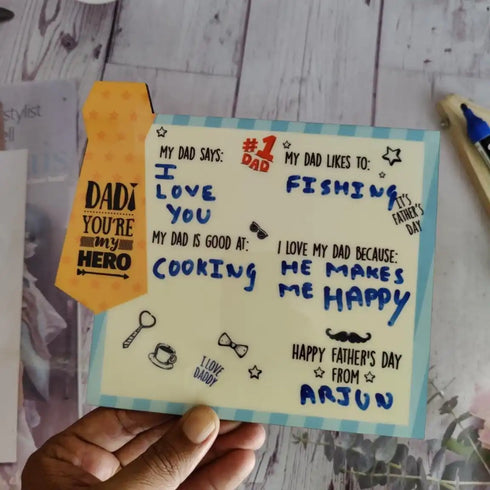 stylist
DAD!
YOU'RE
my
HERO
#1
DAD
MY DAD SAYS:
I
LOVE
YOU
MY DAD LIKES TO:
FISHING
IT'S
FATHER'S
DAY
MY DAD IS GOOD AT:
COOKING
I LOVE MY DAD BECAUSE:
HE MAKES
ME HAPPY
I LOVE
DADDY
HAPPY FATHER'S DAY
FROM
ARJUN